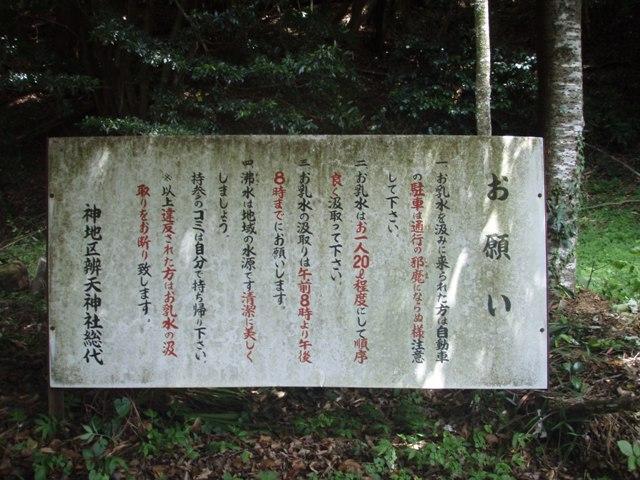 お願い
一 お乳水を汲みに来られた方は自動車
の駐車は通行の邪魔にならぬ様注意
して下さい。
二 お乳水はお一人20ℓ程度にして順序
良く汲取って下さい。
三 お乳水の汲取りは午前8時より午後
8時までにお願いします。
四 沸水は地域の水源です清潔に美しく
しましょう。
持参のゴミは自分で持ち帰り下さい。
※以上違反された方はお乳水の汲
取りをお断り致します。
神地区辨天神社総代